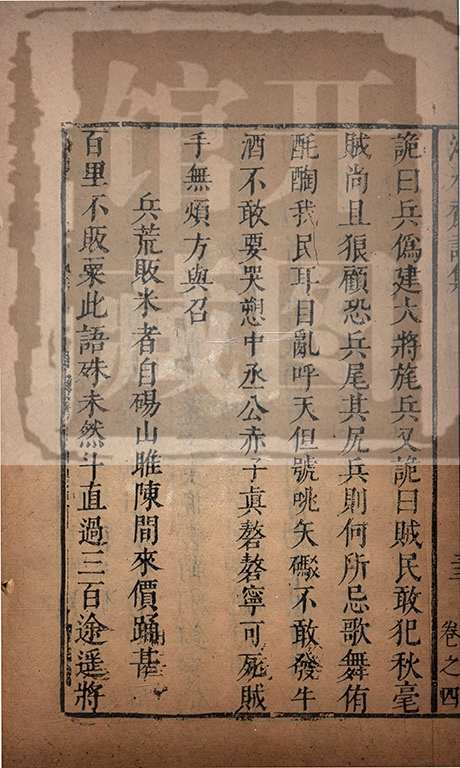 詭曰兵僞建大將旄兵又詭曰賊民敢犯秋毫
賊尚且狼顧恐兵尾其尻兵則何所忌歌舞侑
酕醄我民耳目亂呼天但號咷矢礮不敢發牛
酒不敢要哭愬中丞公赤子真嫠嫠寧可死賊
手無煩方與召
兵荒販米者自碭山睢陳間來價踊甚
百里不販粟此語殊未然斗直過三百途遥將
卷之四
開
圖
館
藏